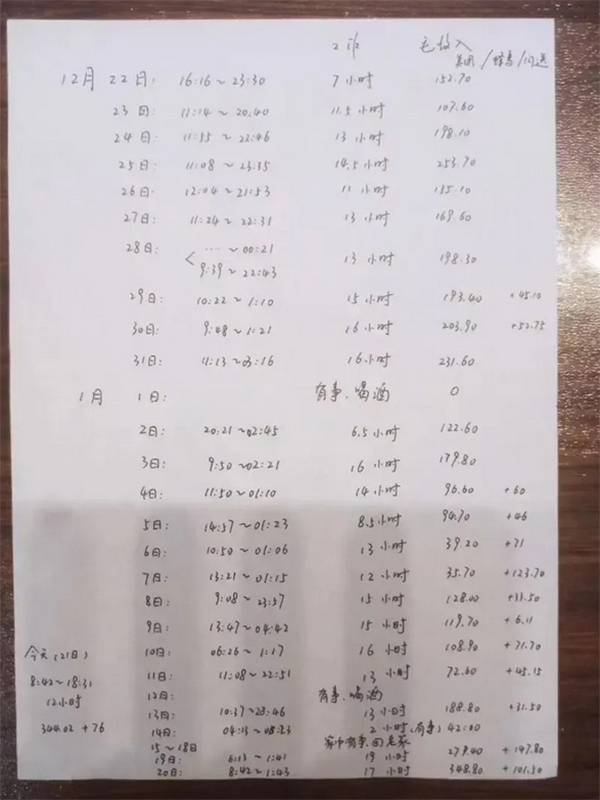 工作 毛收入
美团/蜂鸟/闪送
12月 22日: 16:16~23:30 7小时 152.70
23日: 11:14~20:40 11.5小时 107.60
24日: 11:55~22:46 13小时 198.10
25日: 11:08~23:35 14.5小时 253.70
26日: 12:04~21:53 11小时 135.10
27日: 11:24~22:31 13小时 169.60
28日: < ····~00:21
9:39~22:43 13小时 198.30
29日: 10:22~1:10 15小时 193.40 +45.10
30日: 9:48~1:21 16小时 203.90 +52.75
31日: 11:13~03:16 16小时 231.60
1月 1日: 有事、喝酒 0
2日: 20:21~02:45 6.5小时 122.60
3日: 9:50~02:21 16小时 179.80
4日: 11:50~01:10 14小时 96.60 +60
5日: 14:57~01:23 8.5小时 94.70 +46
6日: 10:50~01:06 13小时 39.20 +71
7日: 13:21~01:15 12小时 35.70 +123.70
8日: 9:08~23:57 15小时 128.00 +31.50
9日: 13:47~04:42 15小时 119.70 +6.11
10日: 06:26~1:17 16小时 108.90 +71.70
11日: 11:08~22:51 13小时 72.60 +45.15
12日: 有事、喝酒
13日: 10:37~23:46 13小时 188.80 +31.50
14日: 04:13~08:23 2小时(有事) 42.00
15~18日 家中有事,回老家
19日: 6:13~1:41 19小时 279.40 +147.80
20日: 8:42~1:43 17小时 348.80 +101.50
今天(21日)
8:42~18:31
12小时
344.02+76